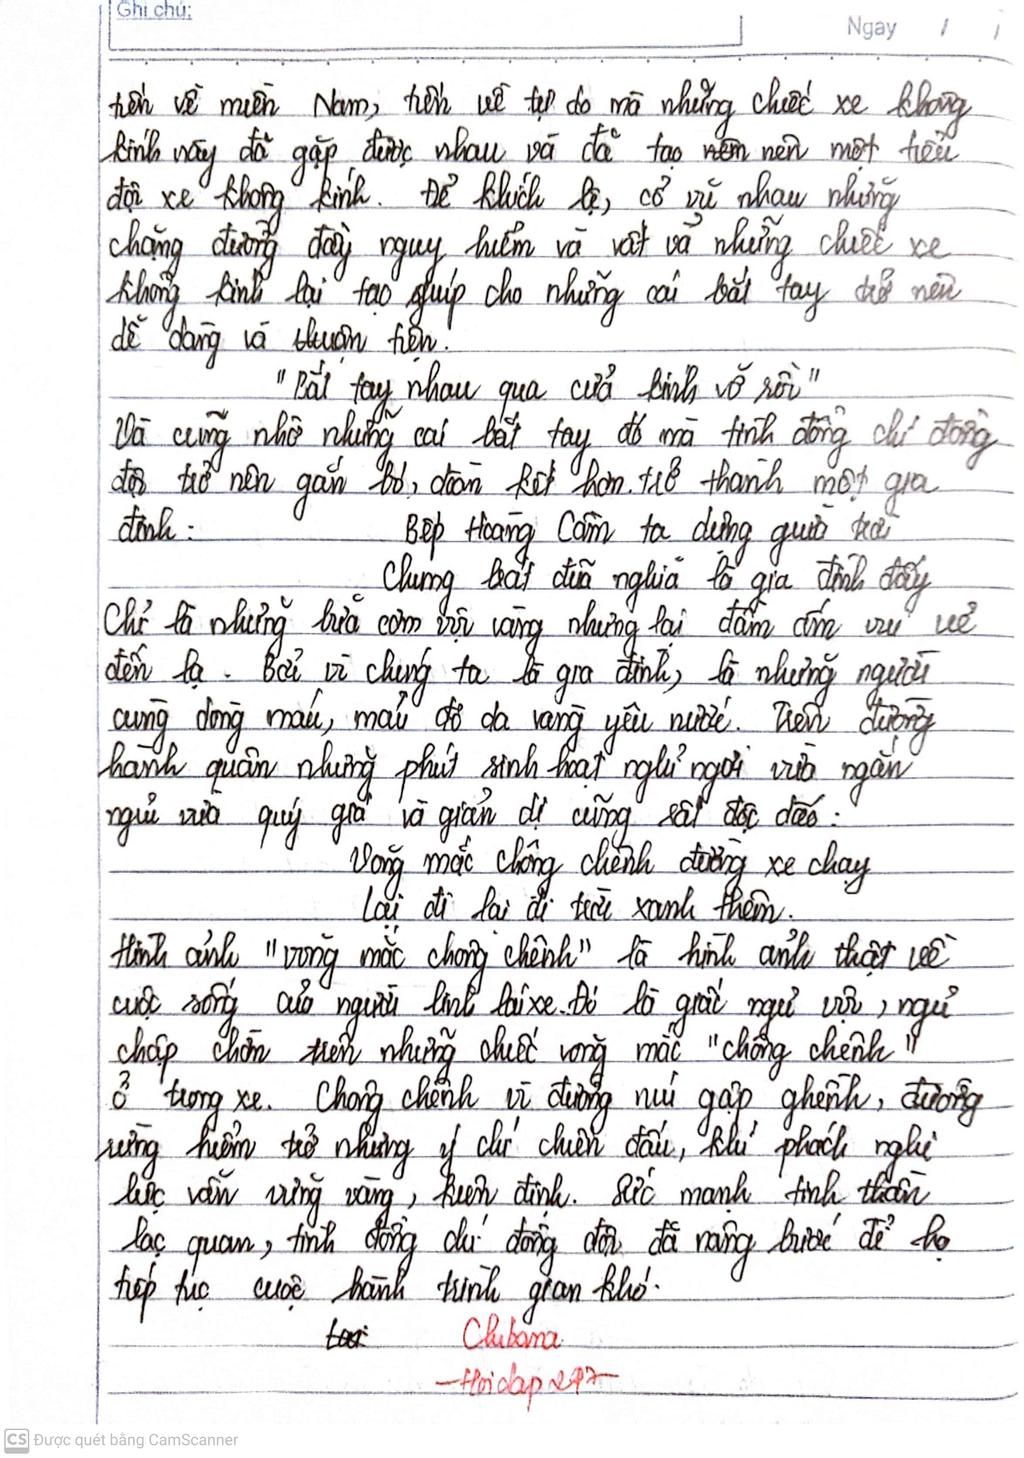 Ghi chú:
Ngày / /
tiến về miền Nam, tiến về tự do mà những chiếc xe không
kính này đã gặp được nhau và đã tạo nên nên một tiểu
đội xe không kính. Để khích lệ, cổ vũ nhau những
chặng đường đầy nguy hiểm và vất vả những chiếc xe
không kính lại tạo giúp cho những cái bắt tay trở nên
dễ dàng và thuận tiện.
"Bắt tay nhau qua cửa kính vỡ rồi"
Và cũng nhờ những cái bắt tay đó mà tình đồng chí đồng
đội trở nên gắn bó, đoàn kết hơn. trở thành một gia
đình: Bếp Hoàng Cầm ta dựng giữa trời
Chung bát đũa nghĩa là gia đình đấy
Chỉ là những bữa cơm vội vàng nhưng lại đầm ấm vui vẻ
đến lạ. Bởi vì chúng ta là gia đình, là những người
cùng dòng máu, máu đỏ da vàng yêu nước. Trên đường
hành quân những phút sinh hoạt nghỉ ngơi vừa ngắn
ngủi vừa quý giá và giản dị cũng rất độc đáo:
Võng mắc chông chênh đường xe chạy
Lại đi lại đi trời xanh thêm.
Hình ảnh "võng mắc chông chênh" là hình ảnh thật về
cuộc sống của người lính lái xe. Đó là giấc ngủ vội, ngủ
chập chờn trên những chiếc võng mắc "chông chênh"
ở trong xe. Chông chênh vì đường núi gập ghềnh, đường
rừng hiểm trở nhưng ý chí chiến đấu, khí phách nghị
lực vẫn vững vàng, kiên định. Sức mạnh tinh thần
lạc quan, tình đồng chí đồng đội đã nâng bước để họ
tiếp tục cuộc hành trình gian khó.
Chibana
-Hoidap247-
CS Được quét bằng CamScanner